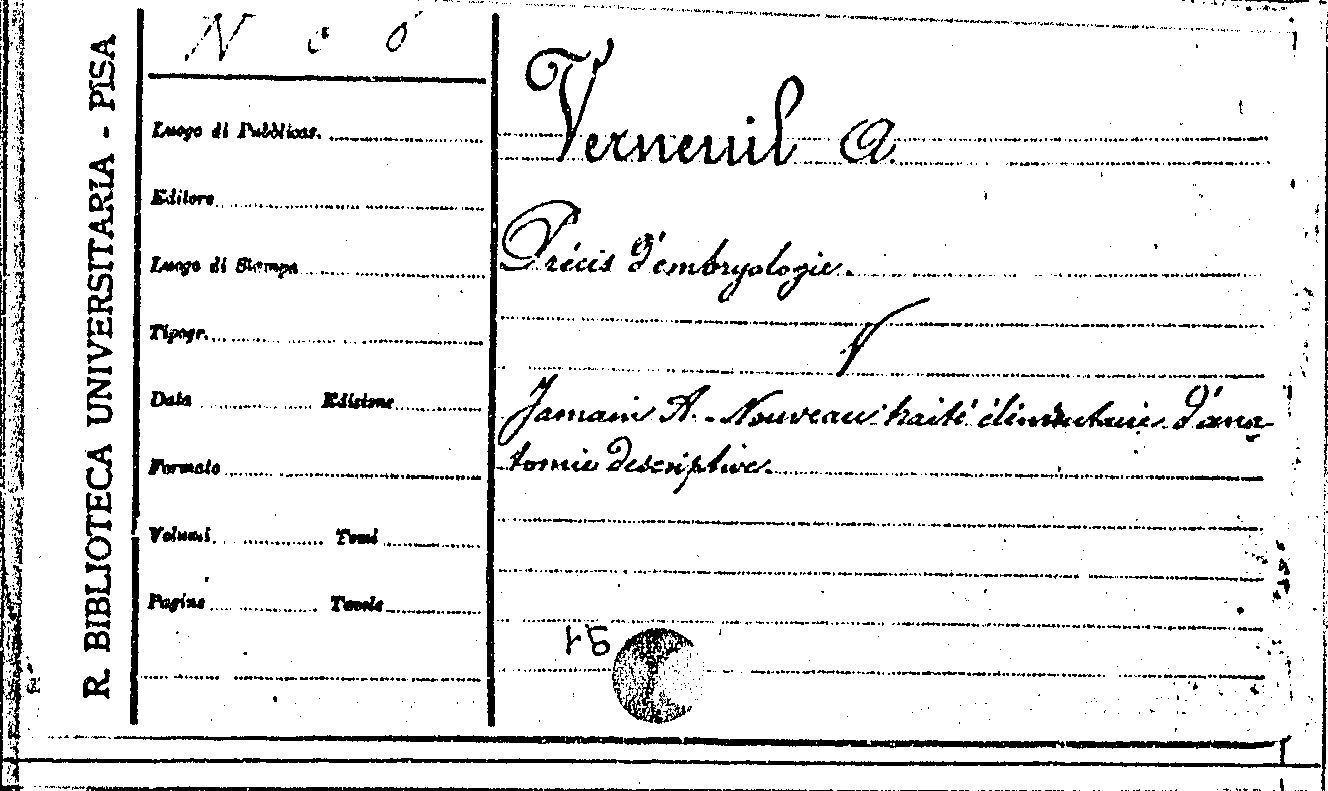 R. BIBLIOTECA UNIVERSITARIA - PISA
N c 6
Luogo di Pubblicaz.
Editore
Luogo di Stampa
Tipogr.
Data Edizione
Formato
Volumi Tomi
Pagine Tavole
Verneuil A.
Précis d'embryologie.
V
Jamain A. - Nouveau traité élémentaire d'ana-
tomie descriptive.